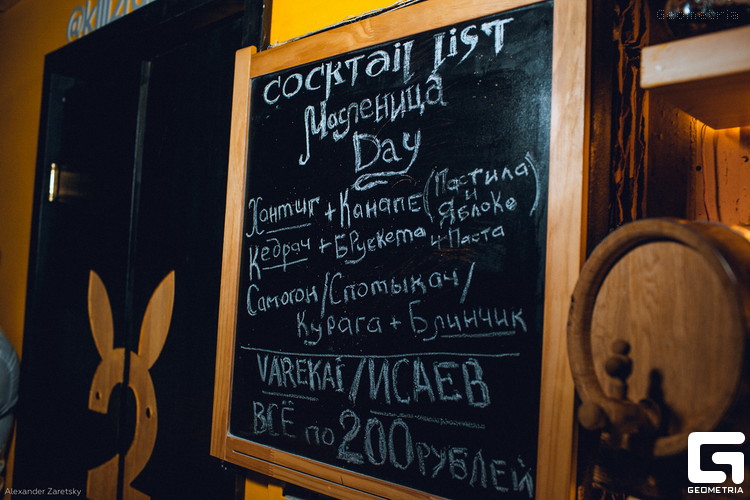 @kill
Geometria
COCKTAIL LIST
Масленица
Day
Хантинг + Канапе (Пастила и Яблоко)
Кедрач + БРускета + Паста
Самогон/Спотыкач/
Курага + Блинчик
VAREKAI/ИСАЕВ
ВСЁ по 200 РУБЛЕЙ
Alexander Zaretsky
GEOMETRIA